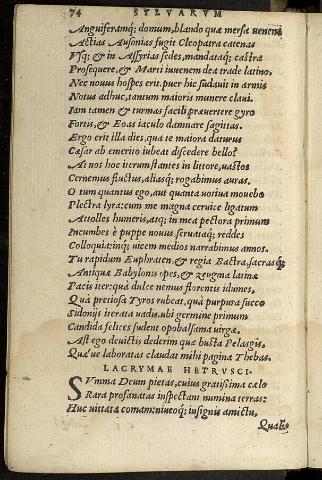 74 SYLVARVM
Anguiferamq; domum, blando quæ mersa veneno
Actias Ausonias fugit Cleopatra catenas
Vsq; & in Assyrias sedes, mandataq; castra
Prosequere, & Marti iuuenem dea trade latino.
Nec nouus hospes erit. puer hic sudauit in armis
Notus adhuc, tantum maioris munere claui.
Iam tamen & turmas facili præuertere gyro
Fortis, & Eoas iaculo damnare sagittas.
Ergo erit illa dies, qua te maiora daturus
Cæsar ab emerito iubeat discedere bello?
At nos hoc iterum stantes in littore, uastos
Cernemus fluctus, aliasq; rogabimus auras.
O tum quantus ego, aut quanta uotiua mouebo
Plectra lyra: cum me magna ceruice ligatum
Attolles humeris, atq; in mea pectora primum
Incumbes è puppe nouus, seruataq; reddes
Colloquia: inq; uicem medios narrabimus annos.
Tu rapidum Euphraten, & regia Bactra, sacrasq;
Antiquæ Babylonis opes, & zeugma latinæ
Pacis iter: quà dulce nemus florentis idumes,
Quà preciosa Tyros rubeat, quà purpura succo
Sidonijs iterata uadis. ubi germine primum
Candida felices sudent opobalsama uirgæ,
Ast ego deuictis dederim quæ busta Pelasgis,
Quæ ue laboratas claudat mihi pagina Thebas.
LACRYMAE HETRVSCI.
SVmma Deum pietas, cuius gratissima cælo
Rara profanatas inspectant numina terras:
Huc uittata comam: niueoq; insignis amictu,
Qualis